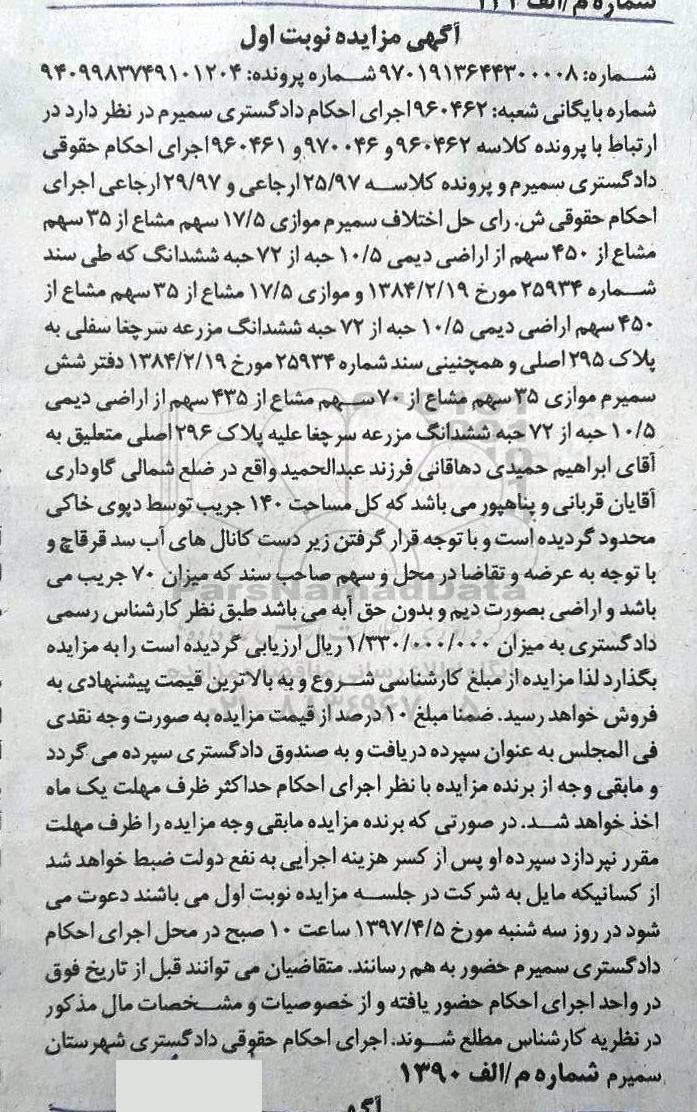 شماره م/الف
آگهی مزایده نوبت اول
شماره: ۹۷۰۱۹۱۳۶۴۴۳۰۰۰۰۸ شماره پرونده: ۹۴۰۹۹۸۳۷۴۹۱۰۱۲۰۴
شماره بایگانی شعبه: ۹۶۰۴۶۲ اجرای احکام دادگستری سمیرم در نظر دارد در
ارتباط با پرونده کلاسه ۹۶۰۴۶۲ و ۹۷۰۰۴۶ و ۹۶۰۴۶۱ اجرای احکام حقوقی
دادگستری سمیرم و پرونده کلاسه ۲۵/۹۷ ارجاعی و ۲۹/۹۷ ارجاعی اجرای
احکام حقوقی ش. رای حل اختلاف سمیرم موازی ۱۷/۵ سهم مشاع از ۳۵ سهم
مشاع از ۴۵۰ سهم از اراضی دیمی ۱۰/۵ حبه از ۷۲ حبه ششدانگ که طی سند
شماره ۲۵۹۳۴ مورخ ۱۳۸۴/۲/۱۹ و موازی ۱۷/۵ مشاع از ۳۵ سهم مشاع از
۴۵۰ سهم اراضی دیمی ۱۰/۵ حبه از ۷۲ حبه ششدانگ مزرعه سرچغا سفلی به
پلاک ۲۹۵ اصلی و همچنینی سند شماره ۲۵۹۳۴ مورخ ۱۳۸۴/۲/۱۹ دفتر شش
سمیرم موازی ۳۵ سهم مشاع از ۷۰ سهم مشاع از ۴۳۵ سهم از اراضی دیمی
۱۰/۵ حبه از ۷۲ حبه ششدانگ مزرعه سرچغا علیه پلاک ۲۹۶ اصلی متعلیق به
آقای ابراهیم حمیدی دهاقانی فرزند عبدالحمید واقع در ضلع شمالی گاوداری
آقایان قربانی و پناهپور می باشد که کل مساحت ۱۴۰ جریب توسط دپوی خاکی
محدود گردیده است و با توجه قرار گرفتن زیر دست کانال های آب سد قرقاچ و
با توجه به عرضه و تقاضا در محل و سهم صاحب سند که میزان ۷۰ جریب می
باشد و اراضی بصورت دیم و بدون حق آبه می باشد طبق نظر کارشناس رسمی
دادگستری به میزان ۱/۳۳۰/۰۰۰/۰۰۰ ریال ارزیابی گردیده است را به مزایده
بگذارد لذا مزایده از مبلغ کارشناسی شروع و به بالاترین قیمت پیشنهادی به
فروش خواهد رسید. ضمنا مبلغ ۱۰ درصد از قیمت مزایده به صورت وجه نقدی
فی المجلس به عنوان سپرده دریافت و به صندوق دادگستری سپرده می گردد
و مابقی وجه از برنده مزایده با نظر اجرای احکام حداکثر ظرف مهلت یک ماه
اخذ خواهد شد. در صورتی که برنده مزایده مابقی وجه مزایده را ظرف مهلت
مقرر نپردازد سپرده او پس از کسر هزینه اجرایی به نفع دولت ضبط خواهد شد
از کسانیکه مایل به شرکت در جلسه مزایده نوبت اول می باشند دعوت می
شود در روز سه شنبه مورخ ۱۳۹۷/۴/۵ ساعت ۱۰ صبح در محل اجرای احکام
دادگستری سمیرم حضور به هم رسانند. متقاضیان می توانند قبل از تاریخ فوق
در واحد اجرای احکام حضور یافته و از خصوصیات و مشخصات مال مذکور
در نظریه کارشناس مطلع شوند. اجرای احکام حقوقی دادگستری شهرستان
سمیرم شماره م/الف ۱۳۹۰
ParsNamadData